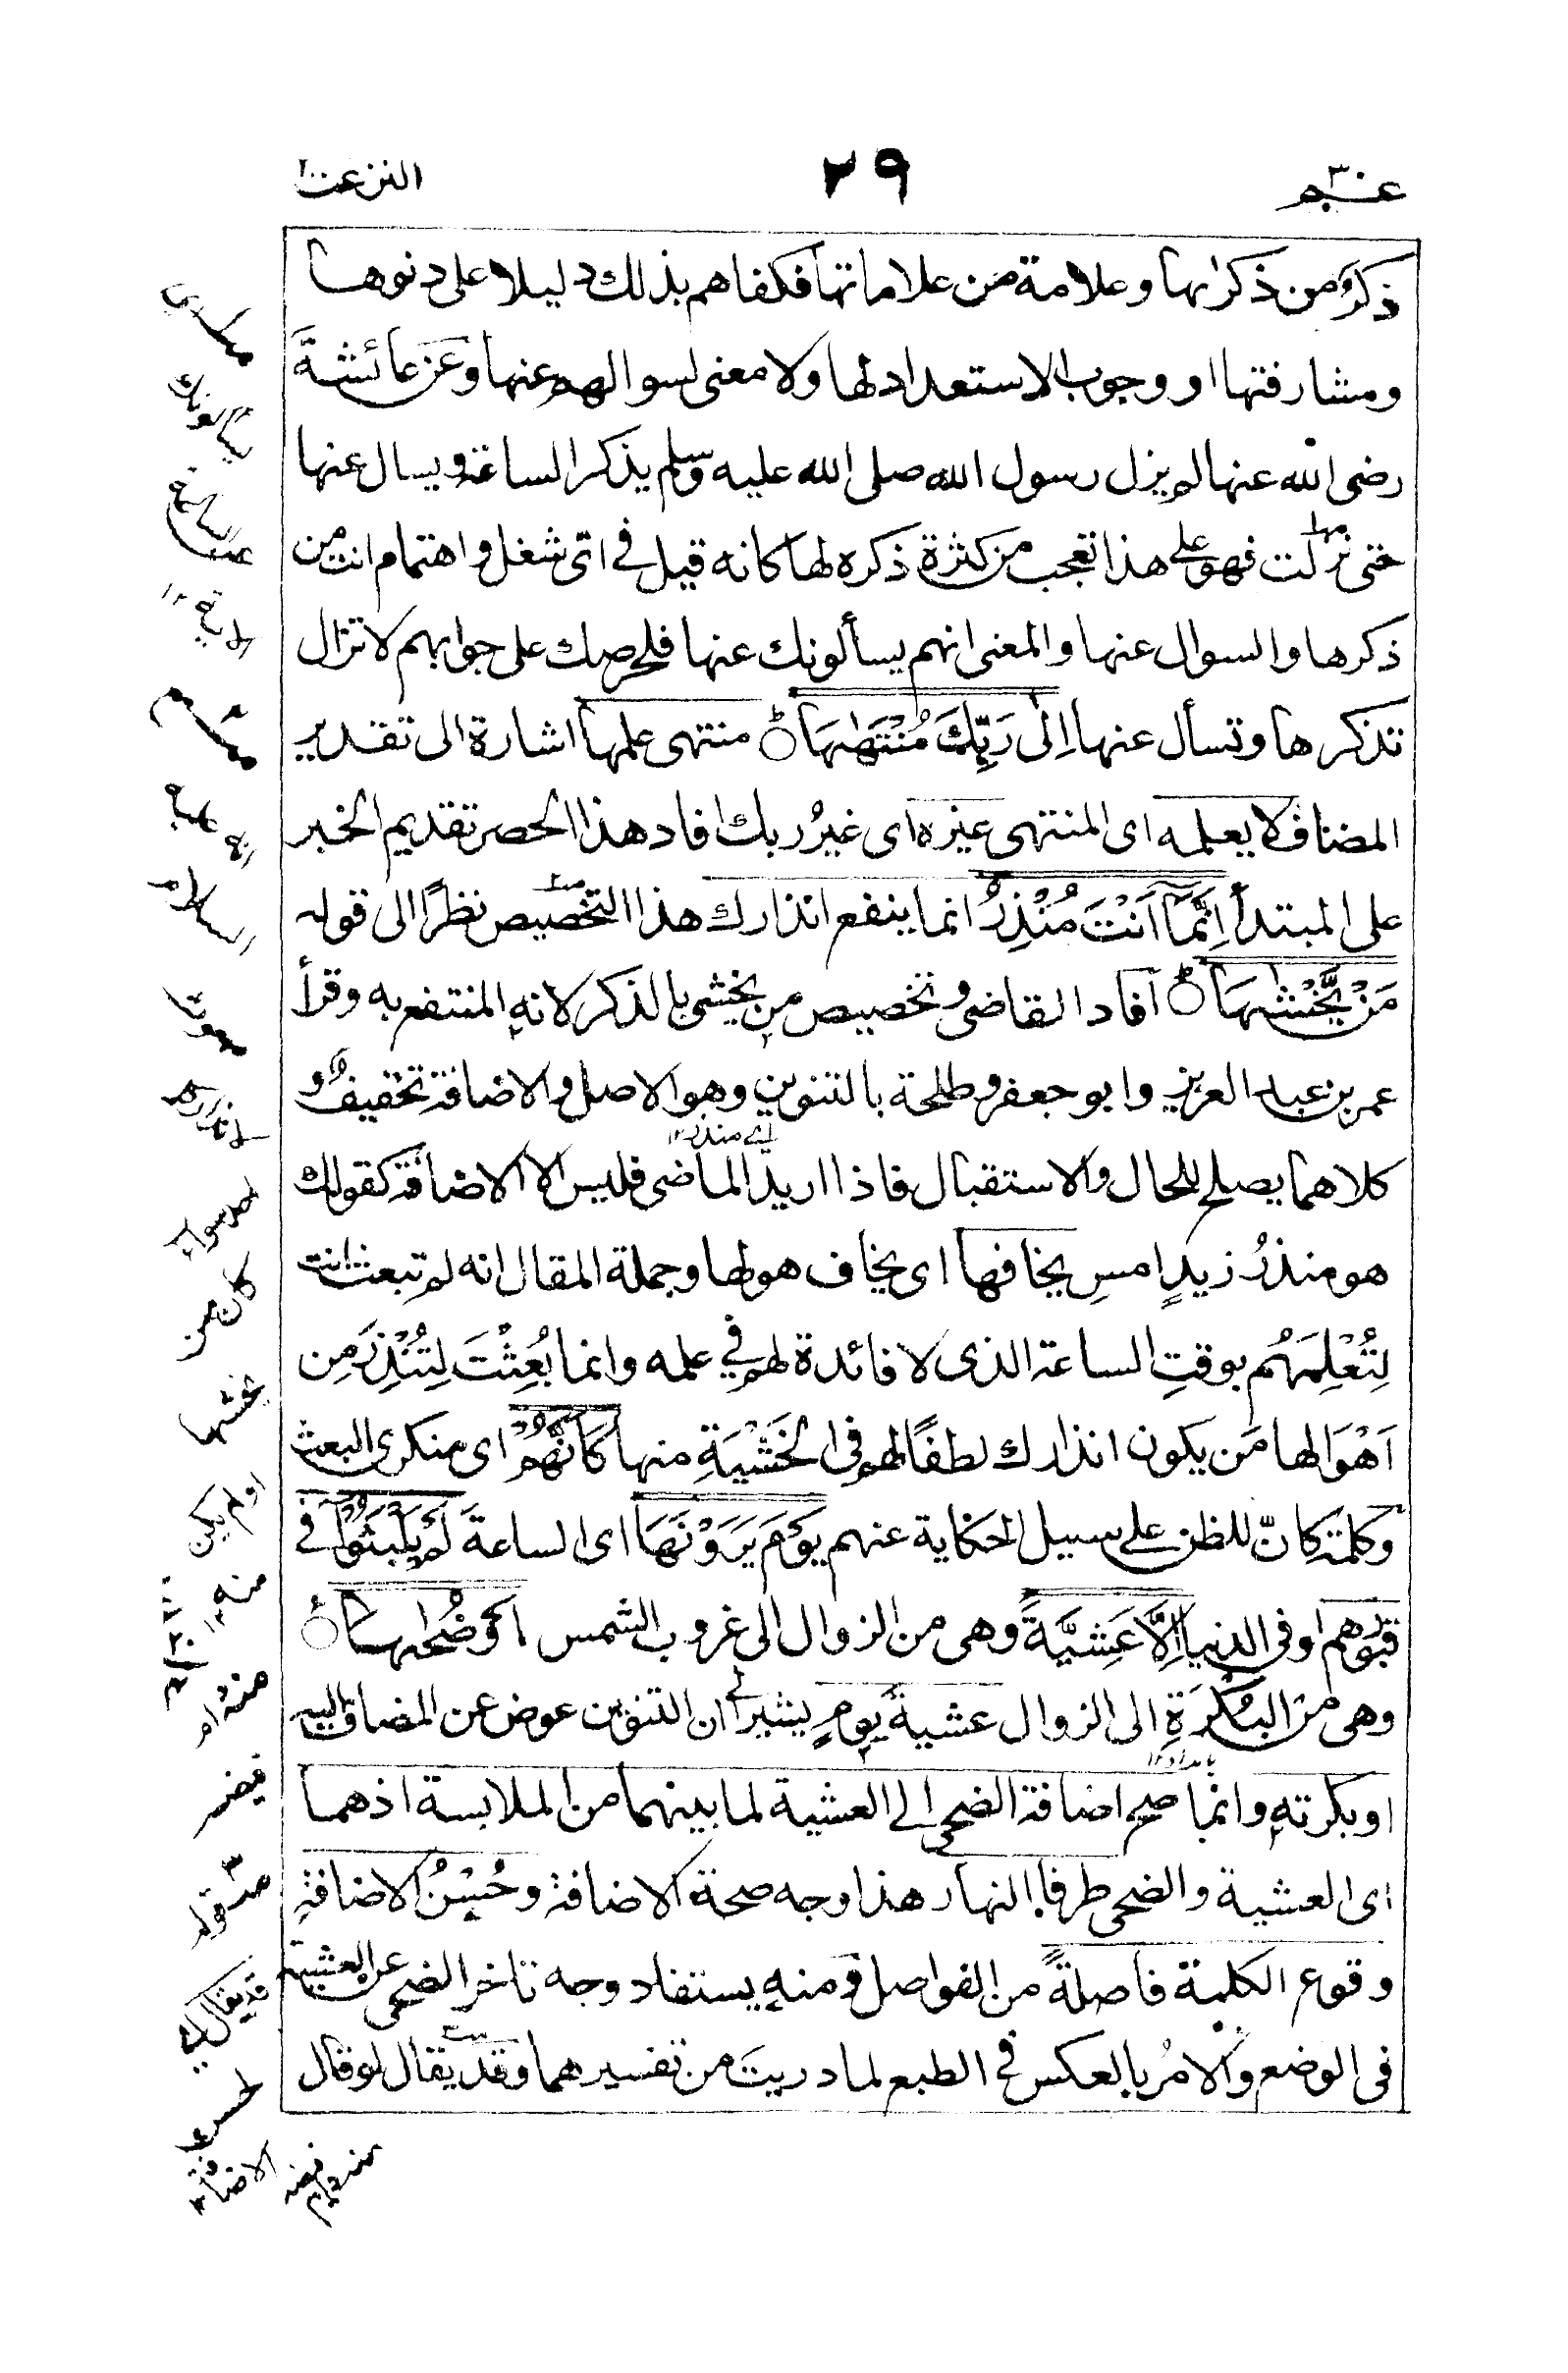 عـــم ٣٠
٢٩
النزعت
ذكرٌ من ذكراها وعلامة من علاماتها فكفاهم بذلك دليلا على دنوها
ومشارفتها او وجوب الاستعداد لها ولا معنى لسوالهم عنها وعن عائشة
رضى الله عنها لم يزل رسول الله صلى الله عليه وسلم يذكر الساعة ويسال عنها
حتى نزلت فهو على هذا تعجب من كثرة ذكره لها كانه قيل فى اىّ شغل واهتمام انت من
ذكرها والسوال عنها والمعنى انهم يسألونك عنها فلحرصك على جوابهم لا تزال
تذكرها وتسأل عنها اِلٰى رَبِّكَ مُنْتَهٰىهَا ؕ منتهى علمها اشارة الى تقدير
المضاف لا يعلمه اى المنتهى غيره اى غيرُ ربك افاد هذا الحصر تقديم الخبر
على المبتدأ اِنَّمَاۤ اَنْتَ مُنْذِرُ انما ينفع انذارك هذا التخصيص نظرًا الى قوله
مَنْ يَّخْشٰىهَا ؕ افاد القاضى وتخصيص من يخشى بالذكر لانه المنتفع به وقرأ
عمر بن عبد العزيز وابو جعفر وطلحة بالتنوين وهو الاصل والاضافة تخفيف و
كلاهما يصلح للحال والاستقبال فاذا اريد الماضى فليس الا الاضافة كقولك
اى منذر ١٢
هو منذرُ زيدٍ امسِ يخافها اى يخاف هولها وجملة المقال انه لم تبعث انت
لِتُعْلِمَهُم بوقتِ الساعة الذى لا فائدة لهم فى علمه وانما بُعِثْتَ لِتُنْذِرَ مِن
اَهْوَالها مَن يكون انذارك لطفًا لهم فى الخَشْيَةِ منها كَاَنَّهُمْ اى منكرى البعث
وكلمة كانّ للظن على سبيل الحكاية عنهم يَوْمَ يَرَوْنَهَا اى الساعة لَمْ يَلْبَثُوْۤا فى
قبورهم او فى الدنيا اِلَّا عَشِيَّةً وهى من الزوال الى غروب الشمس اَوْ ضُحٰىهَا ؕ
وهى من البُكرَةِ الى الزوال عشيةَ يومٍ يشير الى ان التنوين عوض عن المضاف اليه
بامداد ١٢
او بكرته وانما صح اضافة الضحى الى العشية لما بينهما من الملابسة اذ هما
اى العشية والضحى طرفا النهار هذا وجه صحة الاضافة وحُسْنُ الاضافة
وقوع الكلمة فاصلةً من الفواصل ومنه يستفاد وجه تاخر الضحى عن العشية
فى الوضع والامرُ بالعكس فى الطبع لما دريتَ من تفسيرهما وقد يقال لو قال
يسألونك
عن الساعة
الاية ١٢
عليه
السلام
مبعوثا
لانذارهم
سواء
كان من
يخشها
او لم يكن
منه ١٢
قوله
قد يقال
لحسن
الاضافة